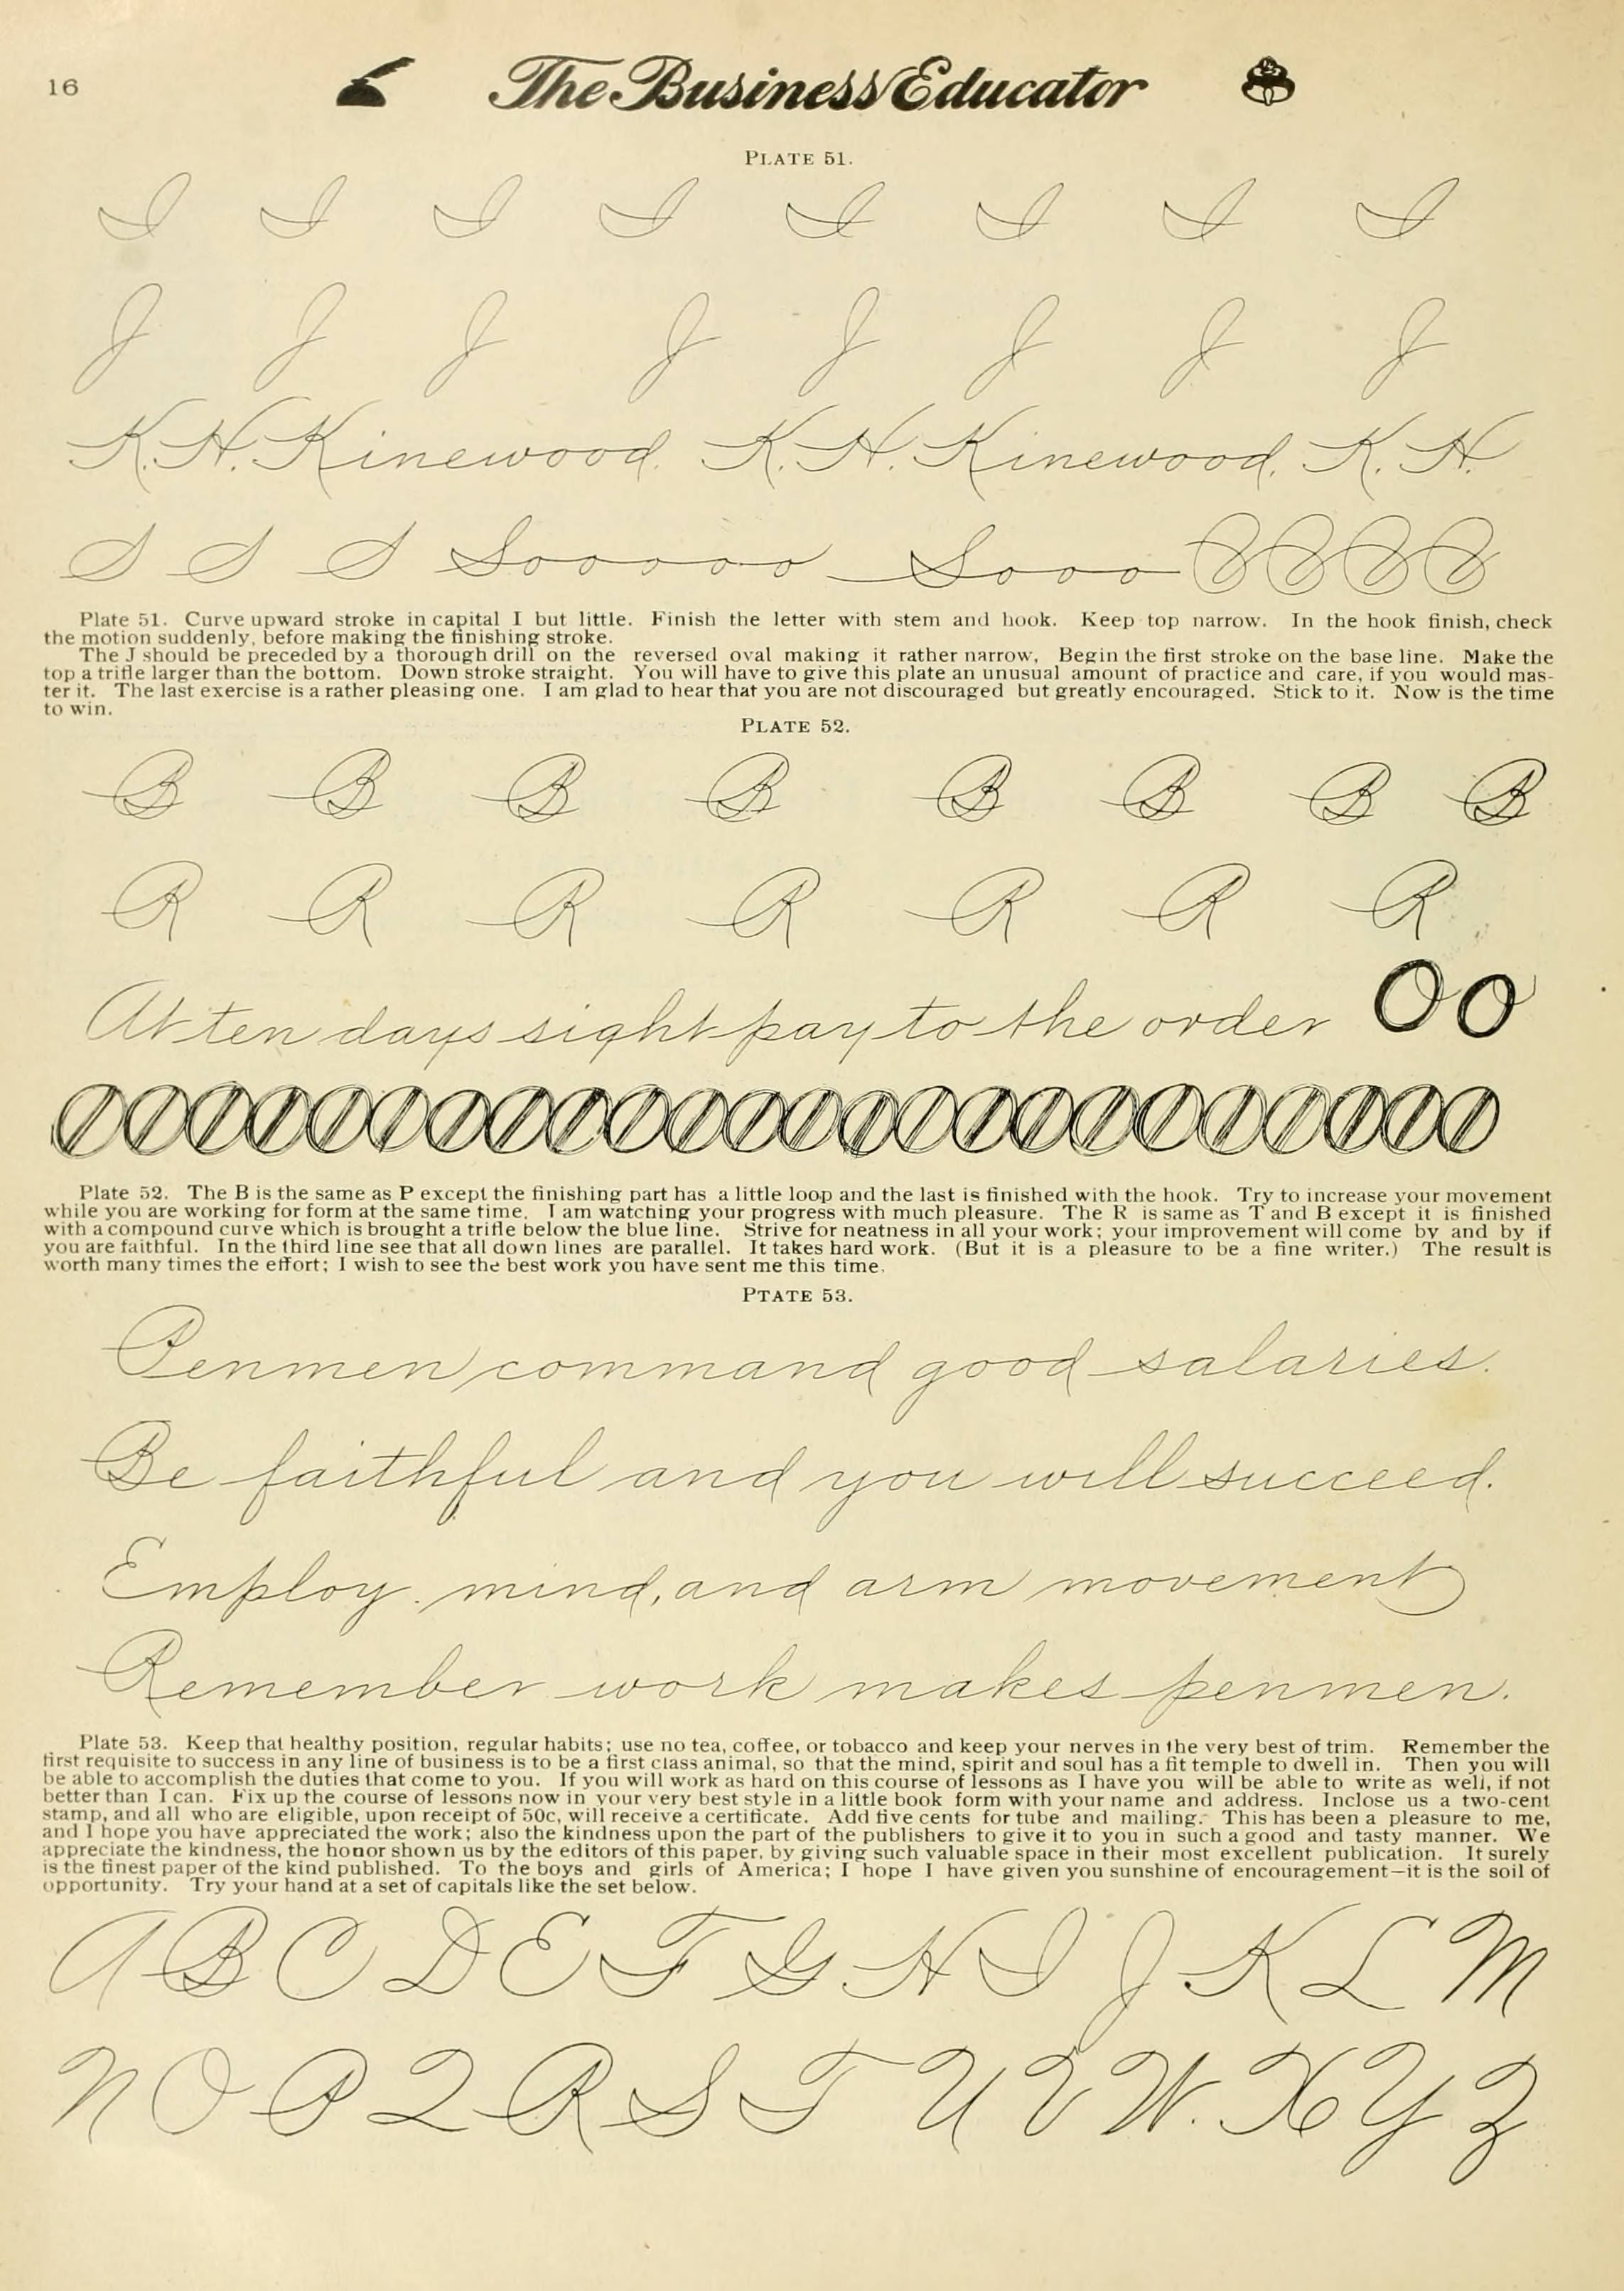 16
The Business Educator
PLATE 51.
I I I I I I I I
J J J J J J J J
K. H. Kinewood. K. H. Kinewood. K. H.
S S S Sooooo Sooo
Plate 51. Curve upward stroke in capital I but little. Finish the letter with stem and hook. Keep top narrow. In the hook finish, check
the motion suddenly, before making the finishing stroke.
The J should be preceded by a thorough drill on the reversed oval making it rather narrow, Begin the first stroke on the base line. Make the
top a trifle larger than the bottom. Down stroke straight. You will have to give this plate an unusual amount of practice and care, if you would mas-
ter it. The last exercise is a rather pleasing one. I am glad to hear that you are not discouraged but greatly encouraged. Stick to it. Now is the time
to win.
PLATE 52.
B B B B B B B B
R R R R R R R
At ten days sight pay to the order Oo
Plate 52. The B is the same as P except the finishing part has a little loop and the last is finished with the hook. Try to increase your movement
while you are working for form at the same time. I am watching your progress with much pleasure. The R is same as T and B except it is finished
with a compound curve which is brought a trifle below the blue line. Strive for neatness in all your work; your improvement will come by and by if
you are faithful. In the third line see that all down lines are parallel. It takes hard work. (But it is a pleasure to be a fine writer.) The result is
worth many times the effort; I wish to see the best work you have sent me this time.
PTATE 53.
Penmen command good salaries.
Be faithful and you will succeed.
Employ mind, and arm movement
Remember work makes penmen.
Plate 53. Keep that healthy position, regular habits; use no tea, coffee, or tobacco and keep your nerves in the very best of trim. Remember the
first requisite to success in any line of business is to be a first class animal, so that the mind, spirit and soul has a fit temple to dwell in. Then you will
be able to accomplish the duties that come to you. If you will work as hard on this course of lessons as I have you will be able to write as well, if not
better than I can. Fix up the course of lessons now in your very best style in a little book form with your name and address. Inclose us a two-cent
stamp, and all who are eligible, upon receipt of 50c, will receive a certificate. Add five cents for tube and mailing. This has been a pleasure to me,
and I hope you have appreciated the work; also the kindness upon the part of the publishers to give it to you in such a good and tasty manner. We
appreciate the kindness, the honor shown us by the editors of this paper, by giving such valuable space in their most excellent publication. It surely
is the finest paper of the kind published. To the boys and girls of America; I hope I have given you sunshine of encouragement—it is the soil of
opportunity. Try your hand at a set of capitals like the set below.
A B C D E F G H I J K L M
N O P Q R S T U V W. X Y Z